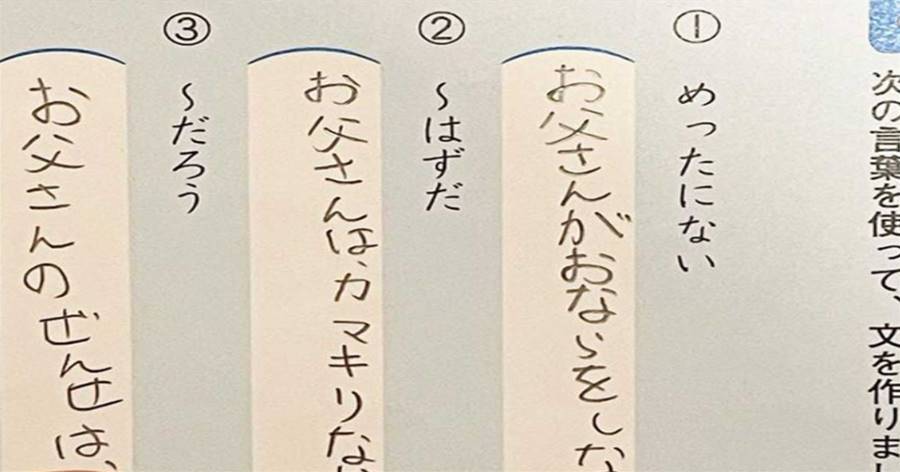 次の言葉を使って、文を作りまし
① めったにない
お父さんがおならをしな
② ～はずだ
お父さんは、カマキリな
③ ～だろう
お父さんのぜんせは、